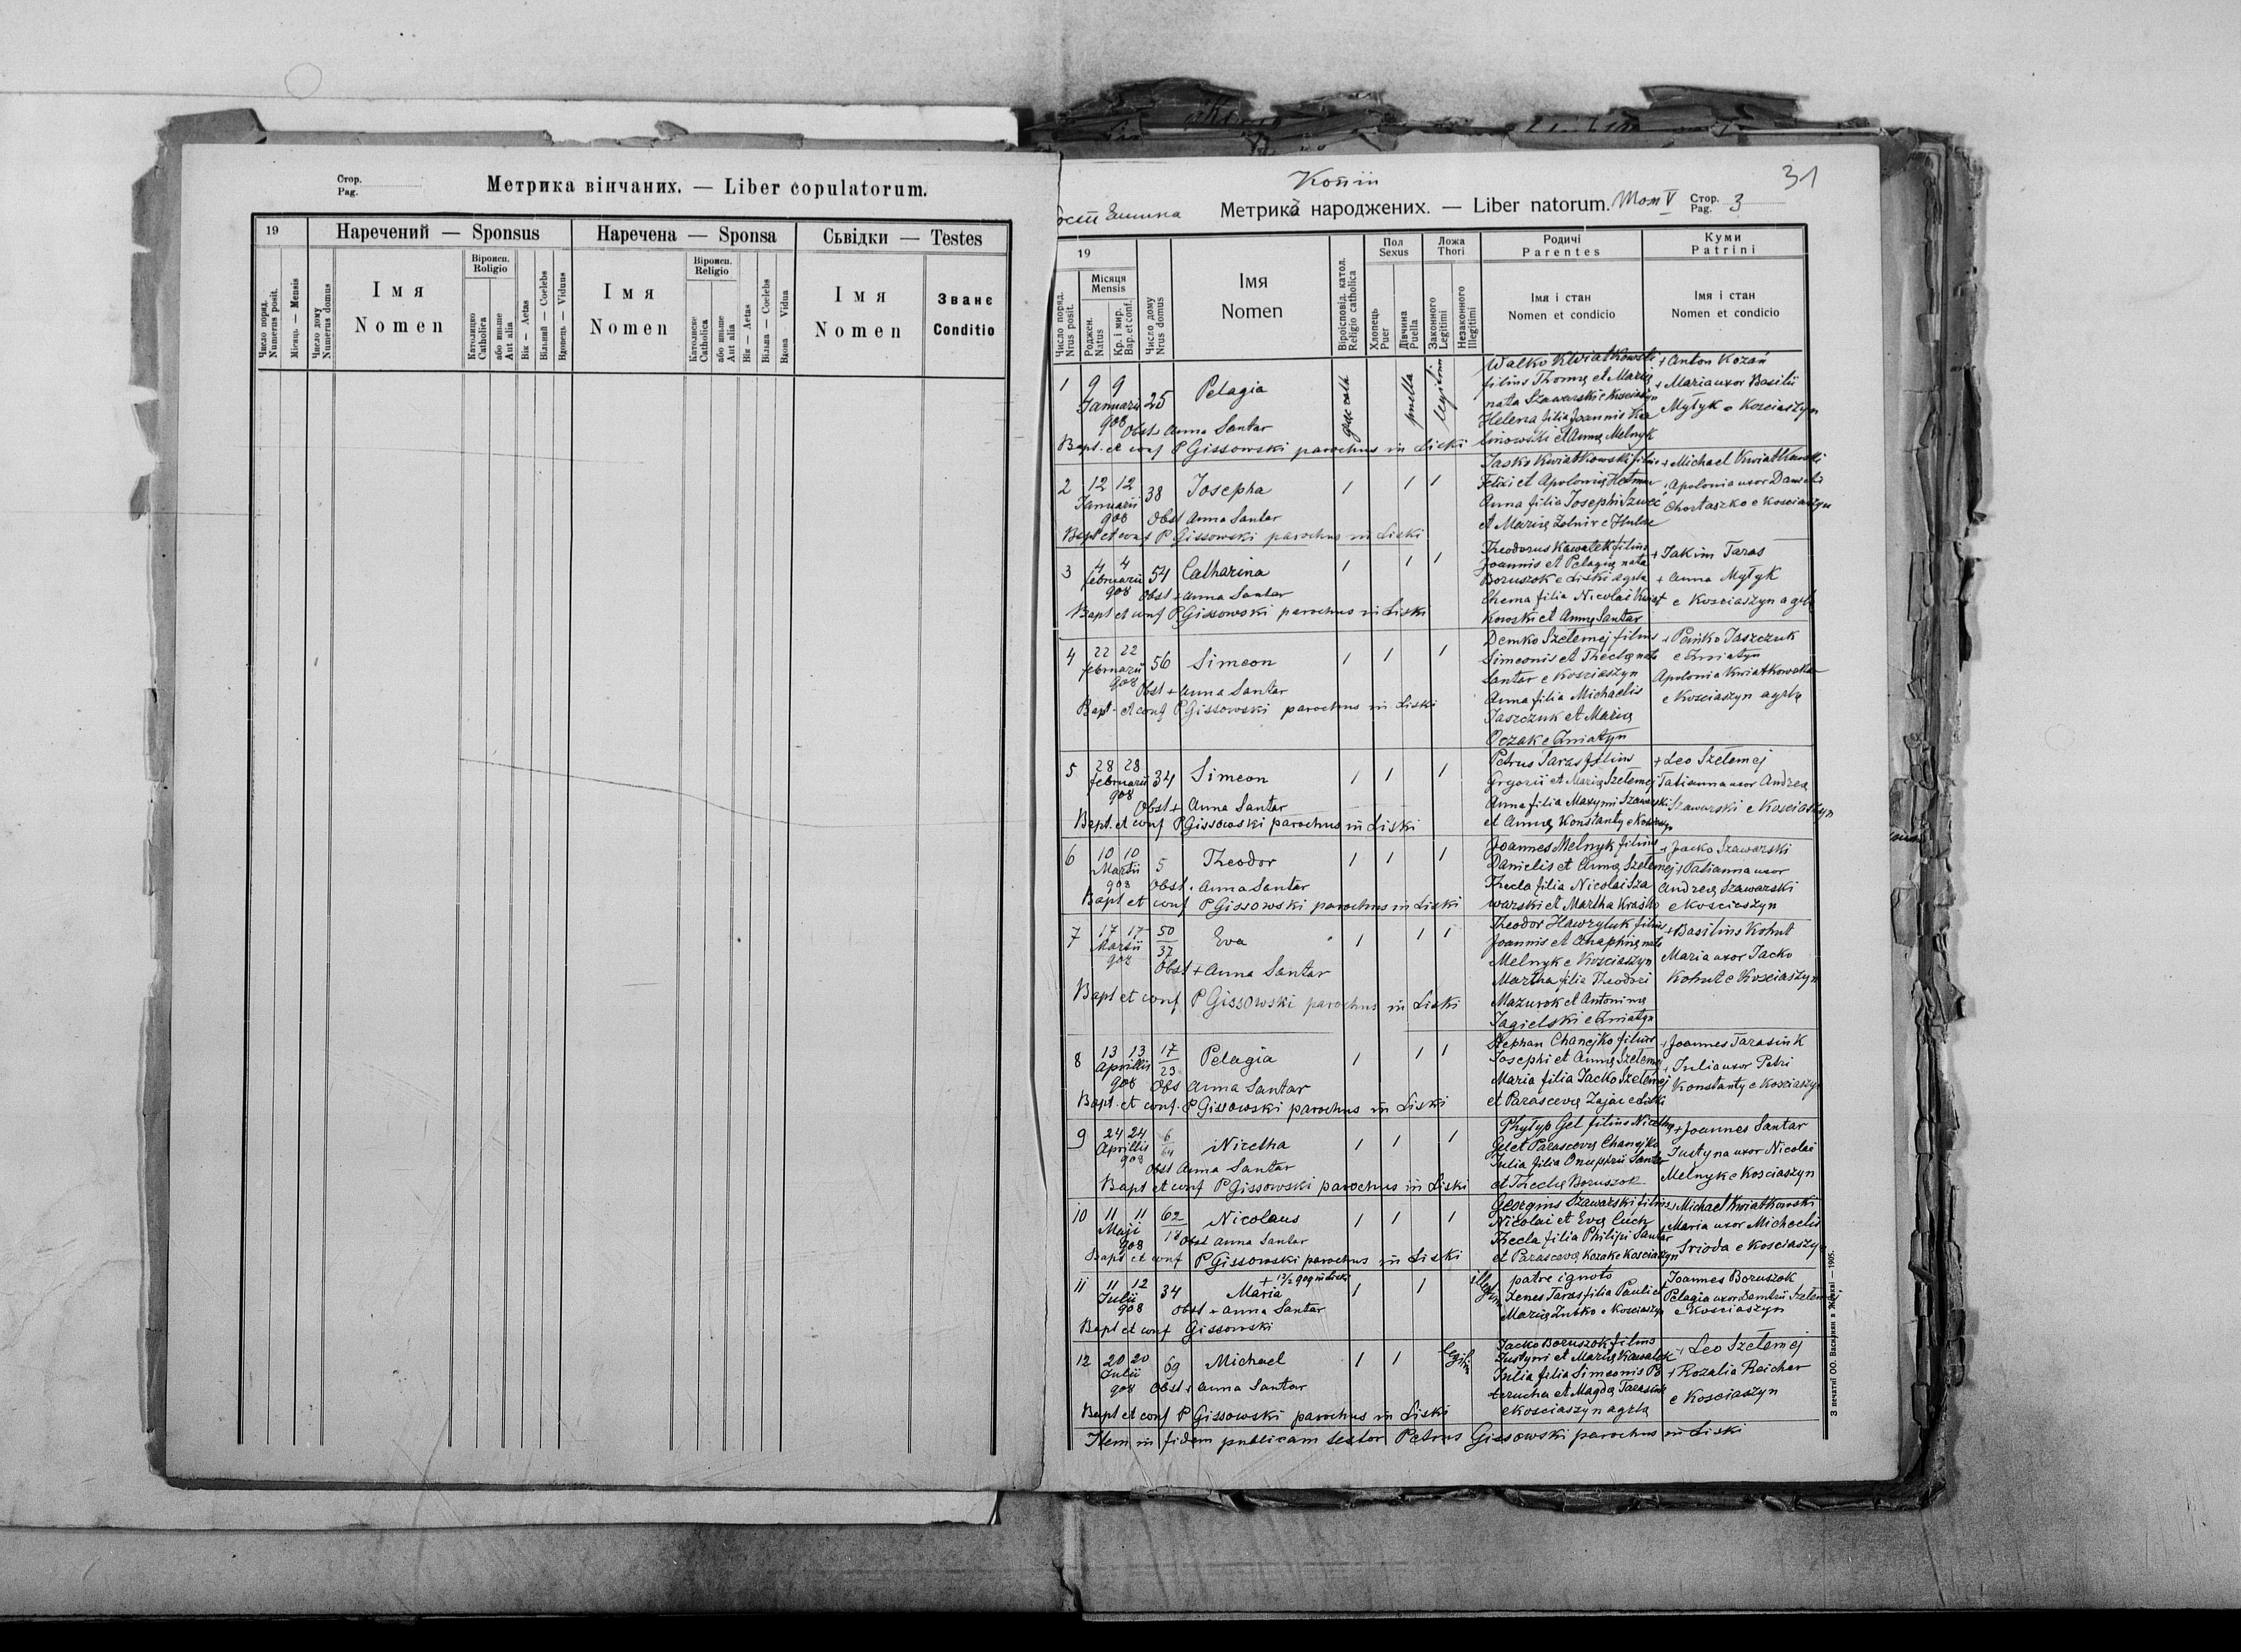 Стор.
Pag.
Метрика вінчаних. — Liber copulatorum.
19
Наречений — Sponsus
Наречена — Sponsa
Сьвідки — Testes
Число поряд.
Numerus posit.
Місяць — Mensis
Число дому
Numerus domus
Імя
Nomen
Віроисп.
Religio
Католицко
Catholica
або иньше
Aut alia
Вік — Aetas
Вільний — Coelebs
Вдовець — Viduus
Імя
Nomen
Віроисп.
Religio
Католиске
Catholica
або иньше
Aut alia
Вік — Aetas
Вільна — Coelebs
Вдова — Vidua
Імя
Nomen
Званє
Conditio
Копіи
31
Метрика народжених. — Liber natorum. Том V Стор.
Pag. 3
19
Число поряд.
Nrus posit.
Місяця
Mensis
Роджен.
Natus
Кр. і мир.
Bap. et conf.
Число дому
Nrus domus
Імя
Nomen
Віроісповід. катол.
Religio catholica
Пол
Sexus
Хлопець
Puer
Дівчина
Puella
Ложа
Thori
Законного
Legitimi
Незаконного
Illegitimi
Родичі
Parentes
Імя і стан
Nomen et condicio
Куми
Patrini
Імя і стан
Nomen et condicio
1 9 9 Januarii 908 25 Pelagia puella legitimi
Obst + Anna Santar
Bapt. et conf P Gissowski parochus in Liski
Walko Kwiatkowski
filius Thomę et Marię
nata Szawarski e Kosciaszyn
Helena filia Joannis Ka
linowski et Annę Melnyk
+ Anton Kozań
+ Maria uxor Basilii
Mytyk e Kosciaszyn
2 12 12 Januarii 908 38 Josepha 1 1 1
Obst Anna Santar
Bapt et conf P Gissowski parochus in Liski
Jasko Kwiatkowski filius
Felixi et Apolonię
Anna filia Josephi Szweć
et Marię Żolnir e
+ Michael Kwiatkowski
+ Apolonia uxor Danieli
Chortaszko e Kosciaszyn
3 4 4 februarii 908 54 Catharina 1 1 1
Obst + Anna Santar
Bapt et conf P Gissowski parochus in Liski
Theodorus Kawalek filius
Joannis et Pelagię nata
Boruszok e Liski agrla
filia Nicolai Kwiat
kowski et Annę Santar
+ Jakim Taras
+ Anna Mytyk
e Kosciaszyn agrlę
4 22 22 februarii 908 56 Simeon 1 1 1
Obst + Anna Santar
Bapt. et conf P Gissowski parochus in Liski
Demko Szelemej filius
Simeonis et Theclę nata
Santar e Kosciaszyn
Anna filia Michaelis
Jaszczuk et Marię
Oczak e Zniatyn
+ Pańko Jaszczuk
e Zniatyn
Apolonia Kwiatkowska
e Kosciaszyn agrlę
5 28 28 februarii 908 34 Simeon 1 1 1
Obst + Anna Santar
Bapt. et conf P Gissowski parochus in Liski
Petrus Taras filius
Grgorii et Marię Szelemej
Anna filia Maxymi Szawarski
et Annę Konstanty e Kosciaszyn
+ Leo Szelemej
Tatianna uxor Andreę
Szawarski e Kosciaszyn
6 10 10 Martii 908 5 Theodor 1 1 1
Obst + Anna Santar
Bapt et conf P Gissowski parochus in Liski
Joannes Melnyk filius
Danielis et Annę Szelemej
Thecla filia Nicolai Sza
warski et Martha Krasko
+ Jacko Szawarski
+ Tatianna uxor
Andreę Szawarski
e Kosciaszyn
7 17 17 Martii 908 50/37 Eva 1 1 1
Obst + Anna Santar
Bapt et conf P Gissowski parochus in Liski
Theodor Hawryluk filius
Joannis et Anaphię nata
Melnyk e Kosciaszyn
Martha filia Theodori
Mazurok et Antoninę
Jagielski e Zniatyn
+ Basilius Kohut
Maria uxor Jacko
Kohut e Kosciaszyn
8 13 13 Aprillis 908 17/23 Pelagia 1 1 1
Obs Anna Santar
Bapt. et conf. P Gissowski parochus in Liski
Stephan Chanejko filius
Josephi et Annę Szelemej
Maria filia Jacko Szelemej
et Parascevę Zając e Liski
+ Joannes Tarasiuk
+ Julia uxor Petri
Konstanty e Kosciaszyn
9 24 24 Aprillis 908 6/64 Nicetha 1 1 1
Obst Anna Santar
Bapt et conf P Gissowski parochus in Liski
Phylyp Gel filius Nicethę
Gel et Parascevę Chanejko
Julia filia Onuphrii Santar
et Theclę Boruszok
+ Joannes Santar
Justyna uxor Nicolai
Melnyk e Kosciaszyn
10 11 11 Maji 908 62/18 Nicolaus 1 1 1
Obst Anna Santar
Bapt et conf P Gissowski parochus in Liski
Georgius Szawarski filius
Nicolai et Evę Cuch
Thecla filia Philipi Santar
et Parascevę Kozak e Kosciaszyn
+ Michael Kwiatkowski
+ Maria uxor Michaelis
Srioda e Kosciaszyn
11 11 12 Julii 908 34 Maria 1 1 illegitimi
Obst + Anna Santar
Bapt et conf Gissowski
patre ignoto
Xenes Taras filia Pauli et
Marię Zubko e Kosciaszyn
Joannes Boruszok
Pelagia uxor Szelemej
e Kosciaszyn
12 20 20 Julii 908 69 Michael 1 1 legitimi
Obst + Anna Santar
Bapt et conf P Gissowski parochus in Liski
Jacko Boruszok filius
Justyni et Marię Kawalek
Julia filia Simeonis Po
terucha et Magdę Tarasiuk
e Kosciaszyn agrlę
+ Leo Szelemej
+ Rozalia Reicher
e Kosciaszyn
Item in fidem publicam testor Petrus Gissowski parochus in Liski
З печатні ОО. Василиян в Жовкві — 1905.